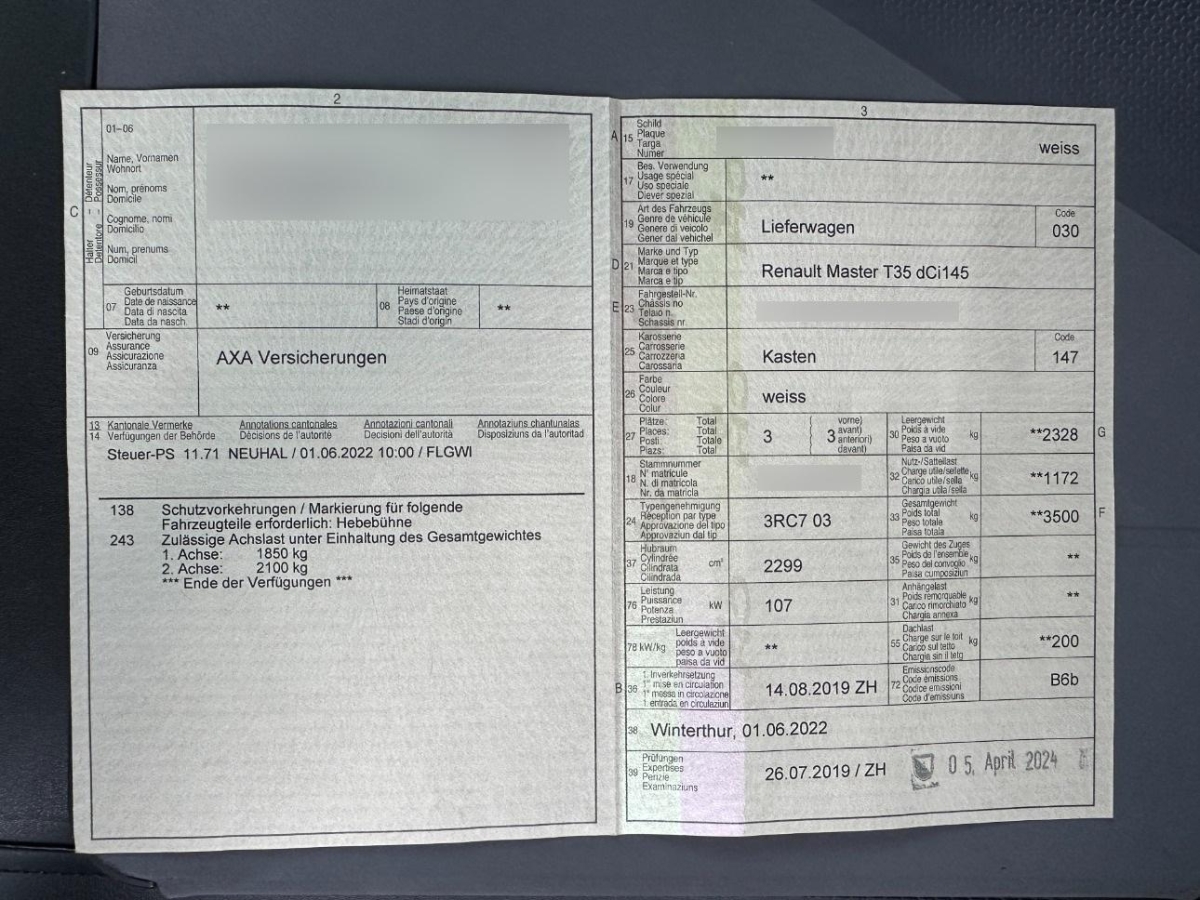 2
01–06
Name, Vornamen
Wohnort
Nom, prénoms
Domicile
Cognome, nomi
Domicilio
Num, prenums
Domicil
C
Halter – Détenteur
Detentore – Possessur
07
Geburtsdatum
Date de naissance
Data di nascita
Data da nasch.
**
08
Heimatstaat
Pays d'origine
Paese d'origine
Stadi d'origin
**
09
Versicherung
Assurance
Assicurazione
Assicuranza
AXA Versicherungen
13 Kantonale Vermerke Annotations cantonales Annotazioni cantonali Annotaziuns chantunalas
14 Verfügungen der Behörde Décisions de l'autorité Decisioni dell'autorità Disposiziuns da l'autoritad
Steuer-PS 11.71 NEUHAL / 01.06.2022 10:00 / FLGWI
138 Schutzvorkehrungen / Markierung für folgende
Fahrzeugteile erforderlich: Hebebühne
243 Zulässige Achslast unter Einhaltung des Gesamtgewichtes
1. Achse: 1850 kg
2. Achse: 2100 kg
*** Ende der Verfügungen ***
3
A 15
Schild
Plaque
Targa
Numer
weiss
17
Bes. Verwendung
Usage spécial
Uso speciale
Diever spezial
**
19
Art des Fahrzeugs
Genre de véhicule
Genere di veicolo
Gener dal vehichel
Lieferwagen
Code
030
D 21
Marke und Typ
Marque et type
Marca e tipo
Marca e tip
Renault Master T35 dCi145
E 23
Fahrgestell-Nr.
Châssis no
Telaio n.
Schassis nr.
25
Karosserie
Carrosserie
Carrozzeria
Carossaria
Kasten
Code
147
26
Farbe
Couleur
Colore
Colur
weiss
27
Plätze: Total
Places: Total
Posti: Totale
Plazs: Total
3
( 3
vorne)
avant)
anteriori)
davant)
30
Leergewicht
Poids à vide
Peso a vuoto
Paisa da vid
kg
**2328
G
18
Stammnummer
N° matricule
N. di matricola
Nr. da matricla
32
Nutz-/Sattellast
Charge utile/sellette
Carico utile/sella
Chargia utila/sella
kg
**1172
24
Typengenehmigung
Réception par type
Approvazione del tipo
Approvaziun dal tip
3RC7 03
33
Gesamtgewicht
Poids total
Peso totale
Paisa totala
kg
**3500
F
37
Hubraum
Cylindrée
Cilindrata
Cilindrada
cm³
2299
35
Gewicht des Zuges
Poids de l'ensemble
Peso del convoglio
Paisa cumposiziun
kg
**
76
Leistung
Puissance
Potenza
Prestaziun
kW
107
31
Anhängelast
Poids remorquable
Carico rimorchiato
Chargia annexa
kg
**
78 kW/kg
Leergewicht
poids à vide
peso a vuoto
paisa da vid
**
55
Dachlast
Charge sur le toit
Carico sul tetto
Chargia sin il tetg
kg
**200
B 36
1. Inverkehrsetzung
1re mise en circulation
1a messa in circolazione
1. entrada en circulaziun
14.08.2019 ZH
72
Emissionscode
Code émissions
Codice emissioni
Code d'emissiuns
B6b
38
Winterthur, 01.06.2022
39
Prüfungen
Expertises
Perizie
Examinaziuns
26.07.2019 / ZH
05. April 2024